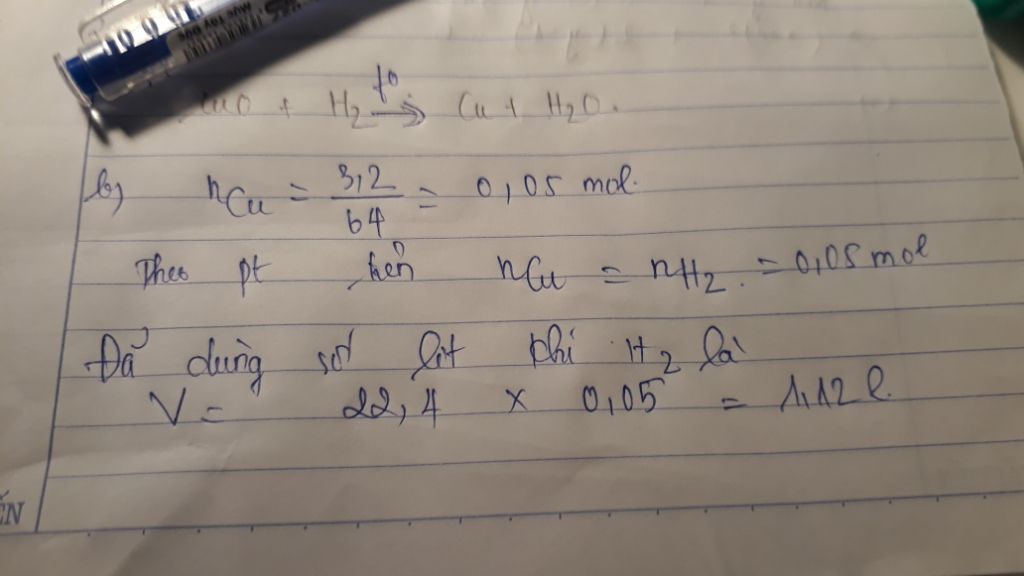 CuO + H2 t° → Cu + H2O.
b) nCu = 3,2/64 = 0,05 mol.
Theo pt trên nCu = nH2. = 0,05 mol
Đã dùng số lít khí H2 là
V = 22,4 x 0,05 = 1,12 l